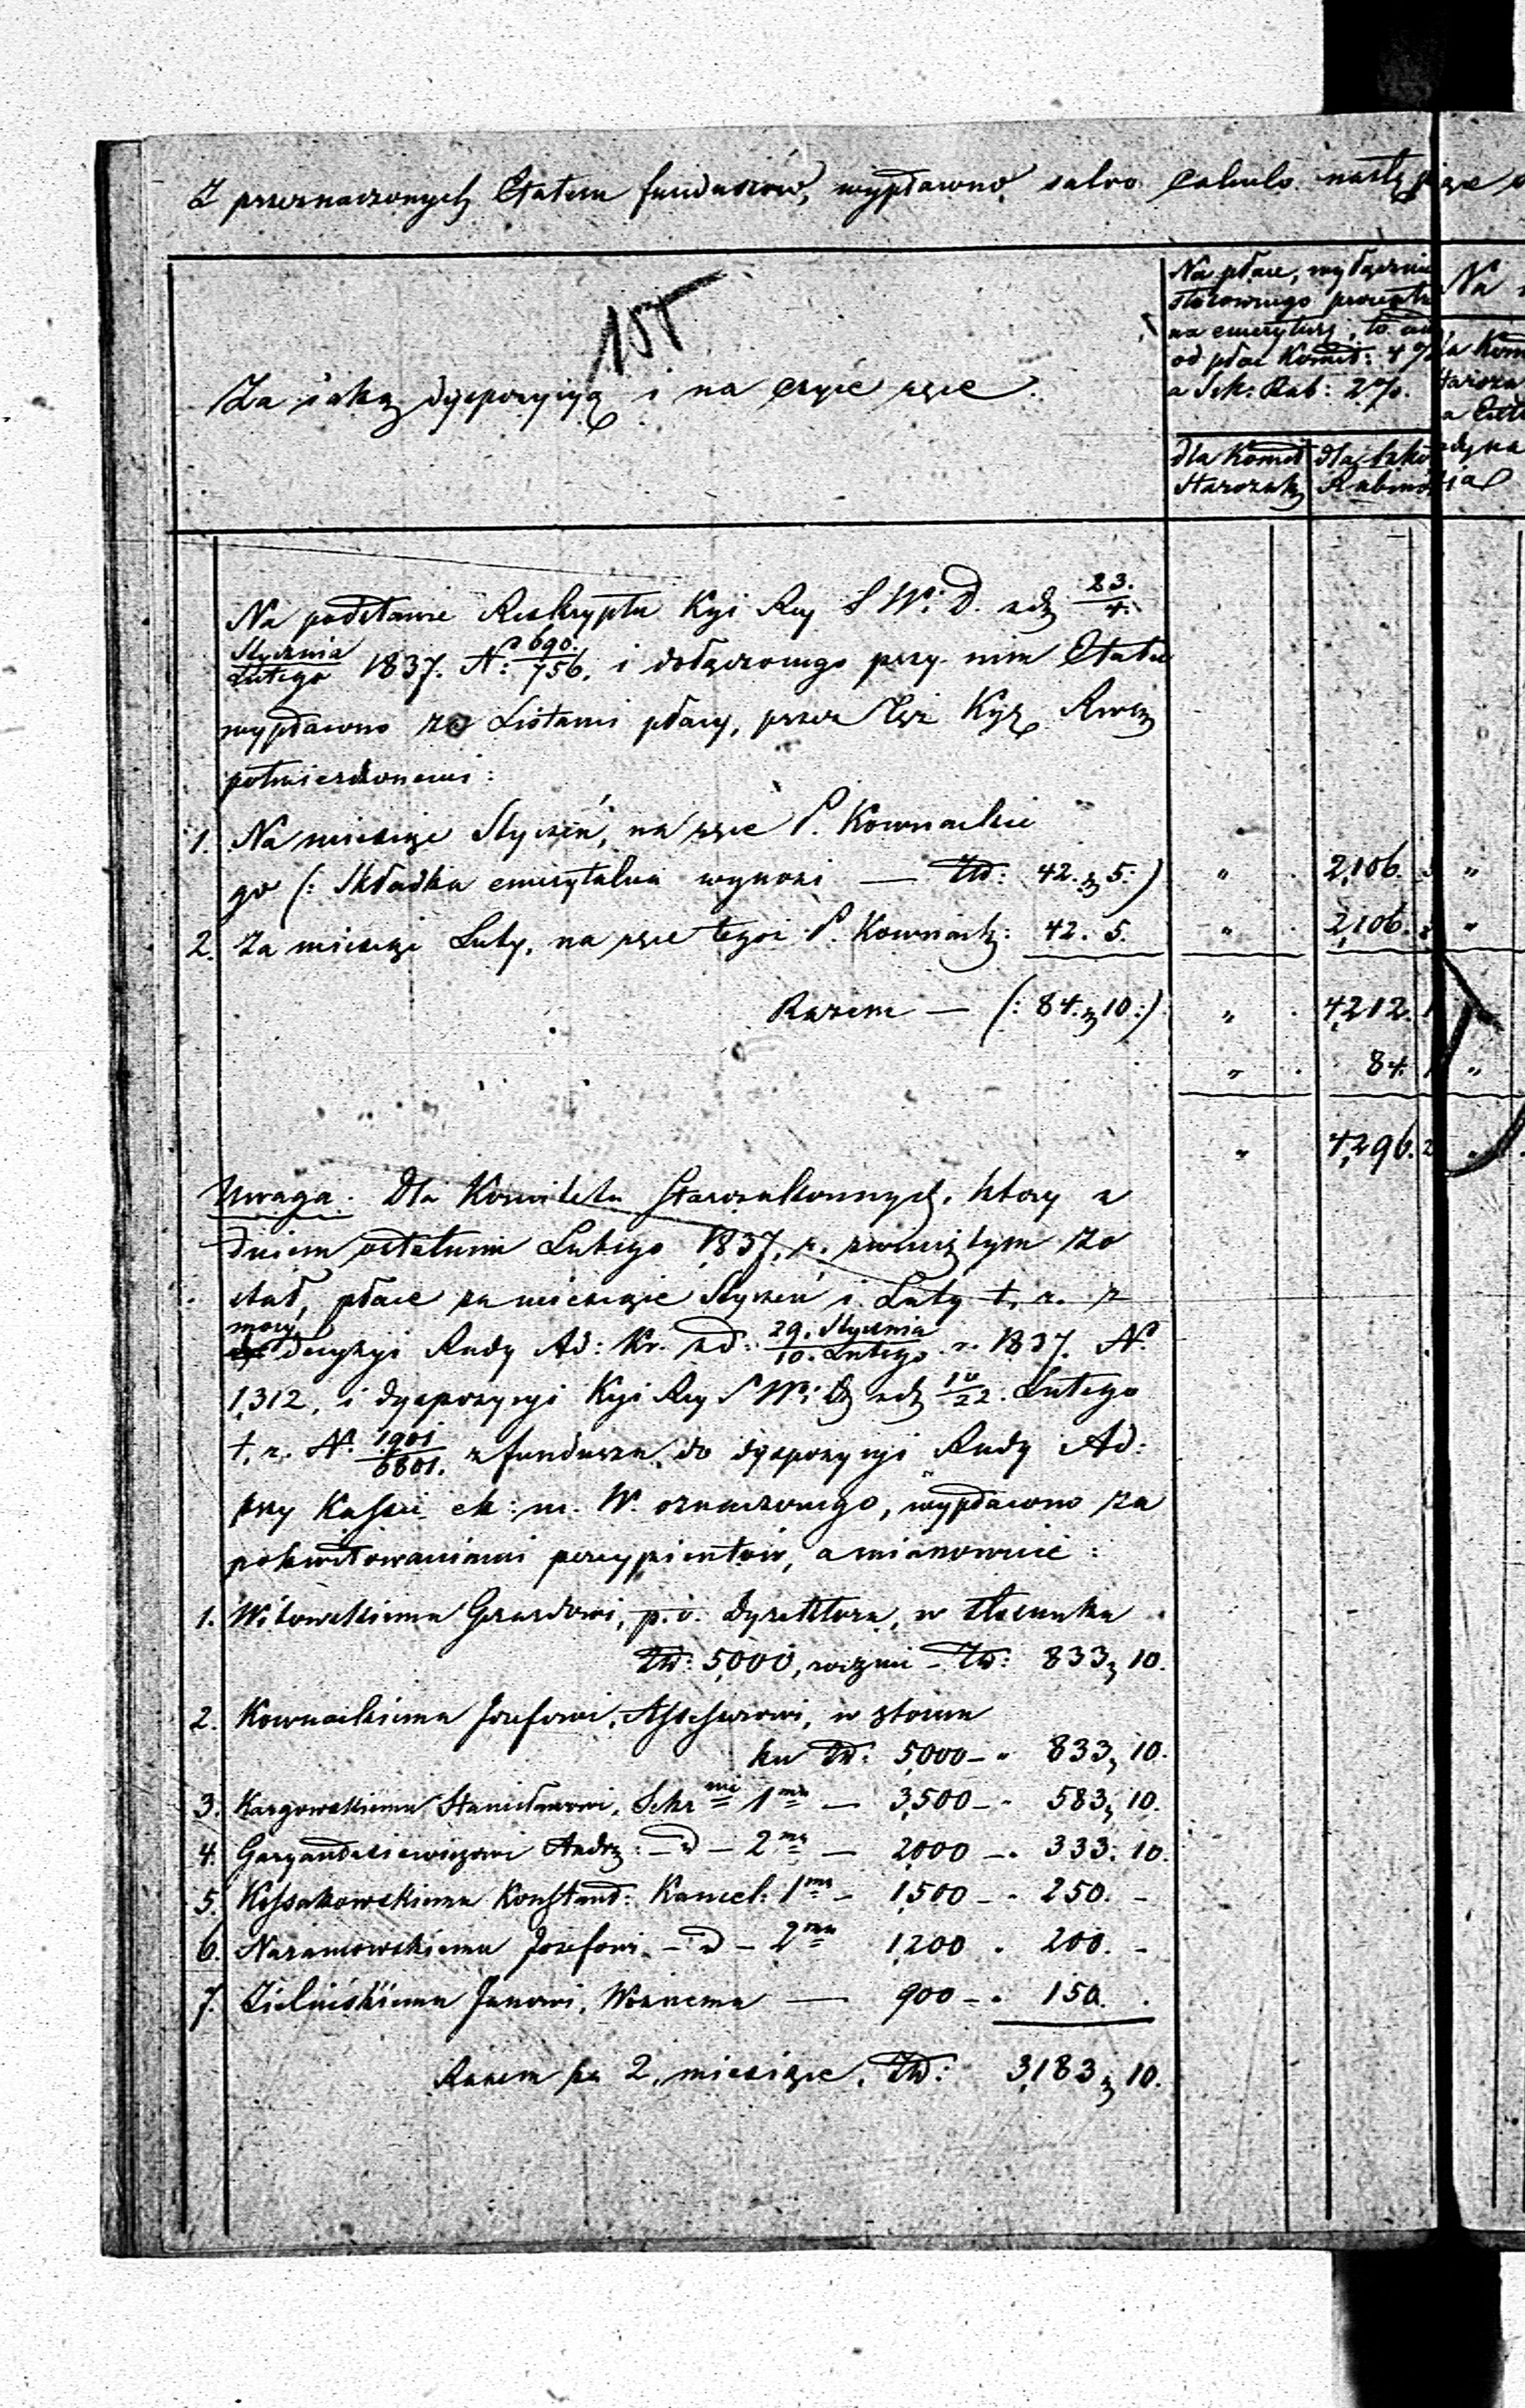 Z przeznaczonych Etatem funduszów, wypłacono salvo Calculo następujące
155
Za iaką dyspozycyą i na czyie ręce.
Na płace, wyłącznie
stosownego procentu
na emeryturę, to iest
od płac Komit: 4 %
a Szk: Rab: 2 %.
Na
dla Komit
Starozak
dla Szkoły
Rabinów
Na podstawie Reskryptu Kyi Rey S. W. i D. z d 23./4.
Stycznia/Lutego 1837. N: 690./756. i dołączonego przy nim Etatu
wypłacono za Listami płacy, przez też Kyę Rową
potwierdzonemi:
1. Na miesiąc Styczeń, na ręce P. Kownackie
go (: Składka emerytalna wynosi — Złt: 42. g 5:) " 2,106.
2. Za miesiąc Luty, na ręce tegoż P. Kownack: 42. 5. " 2,106.
Razem — (: 84. g 10:) " 4,212.
" 84.
" 4,296.
Uwaga. Dla Komitetu Starozakonnych, który z
dniem ostatnim Lutego 1837. r. zwiniętym zo
stał, płace za miesiące Styczeń i Luty t. r. z
mocy
decyzyi Rady Ad: Kr. z d: 29. Stycznia/10. Lutego r. 1837. N.
1,312, i dyspozycyi Kyi Rey S W i D z d 10/22. Lutego
t. r. N. 1901/6801. z funduszu do dyspozycyi Rady Ad:
przy Kassie ek: m. W. oznaczonego, wypłacono za
pokwitowaniami percypientów, a mianowicie:
1. Witowskiemu Gerardowi, p. o. Dyrektora, w stosunku
Złt: 5,000, rocznie - Złt: 833 g 10.
2. Kownackiemu Józefowi, Assessorowi, w stosun
ku Złt: 5,000 - " 833 g 10.
3. Kargowskiemu Stanisławowi, Sekr mi 1mu — 3,500 - " 583 g 10.
4. Andrz: - d - 2mu — 2,000 - " 333. 10.
5. Kossakowskiemu Konstant: Kancel: 1mu - 1,500 - " 250. -
6. Naramowskiemu Józefowi - d - 2mu 1,200 " 200. -
7. Zielińskiemu Janowi, Woźnemu — 900 - " 150. .
Razem za 2, miesiące, Złt: 3,183 g 10.